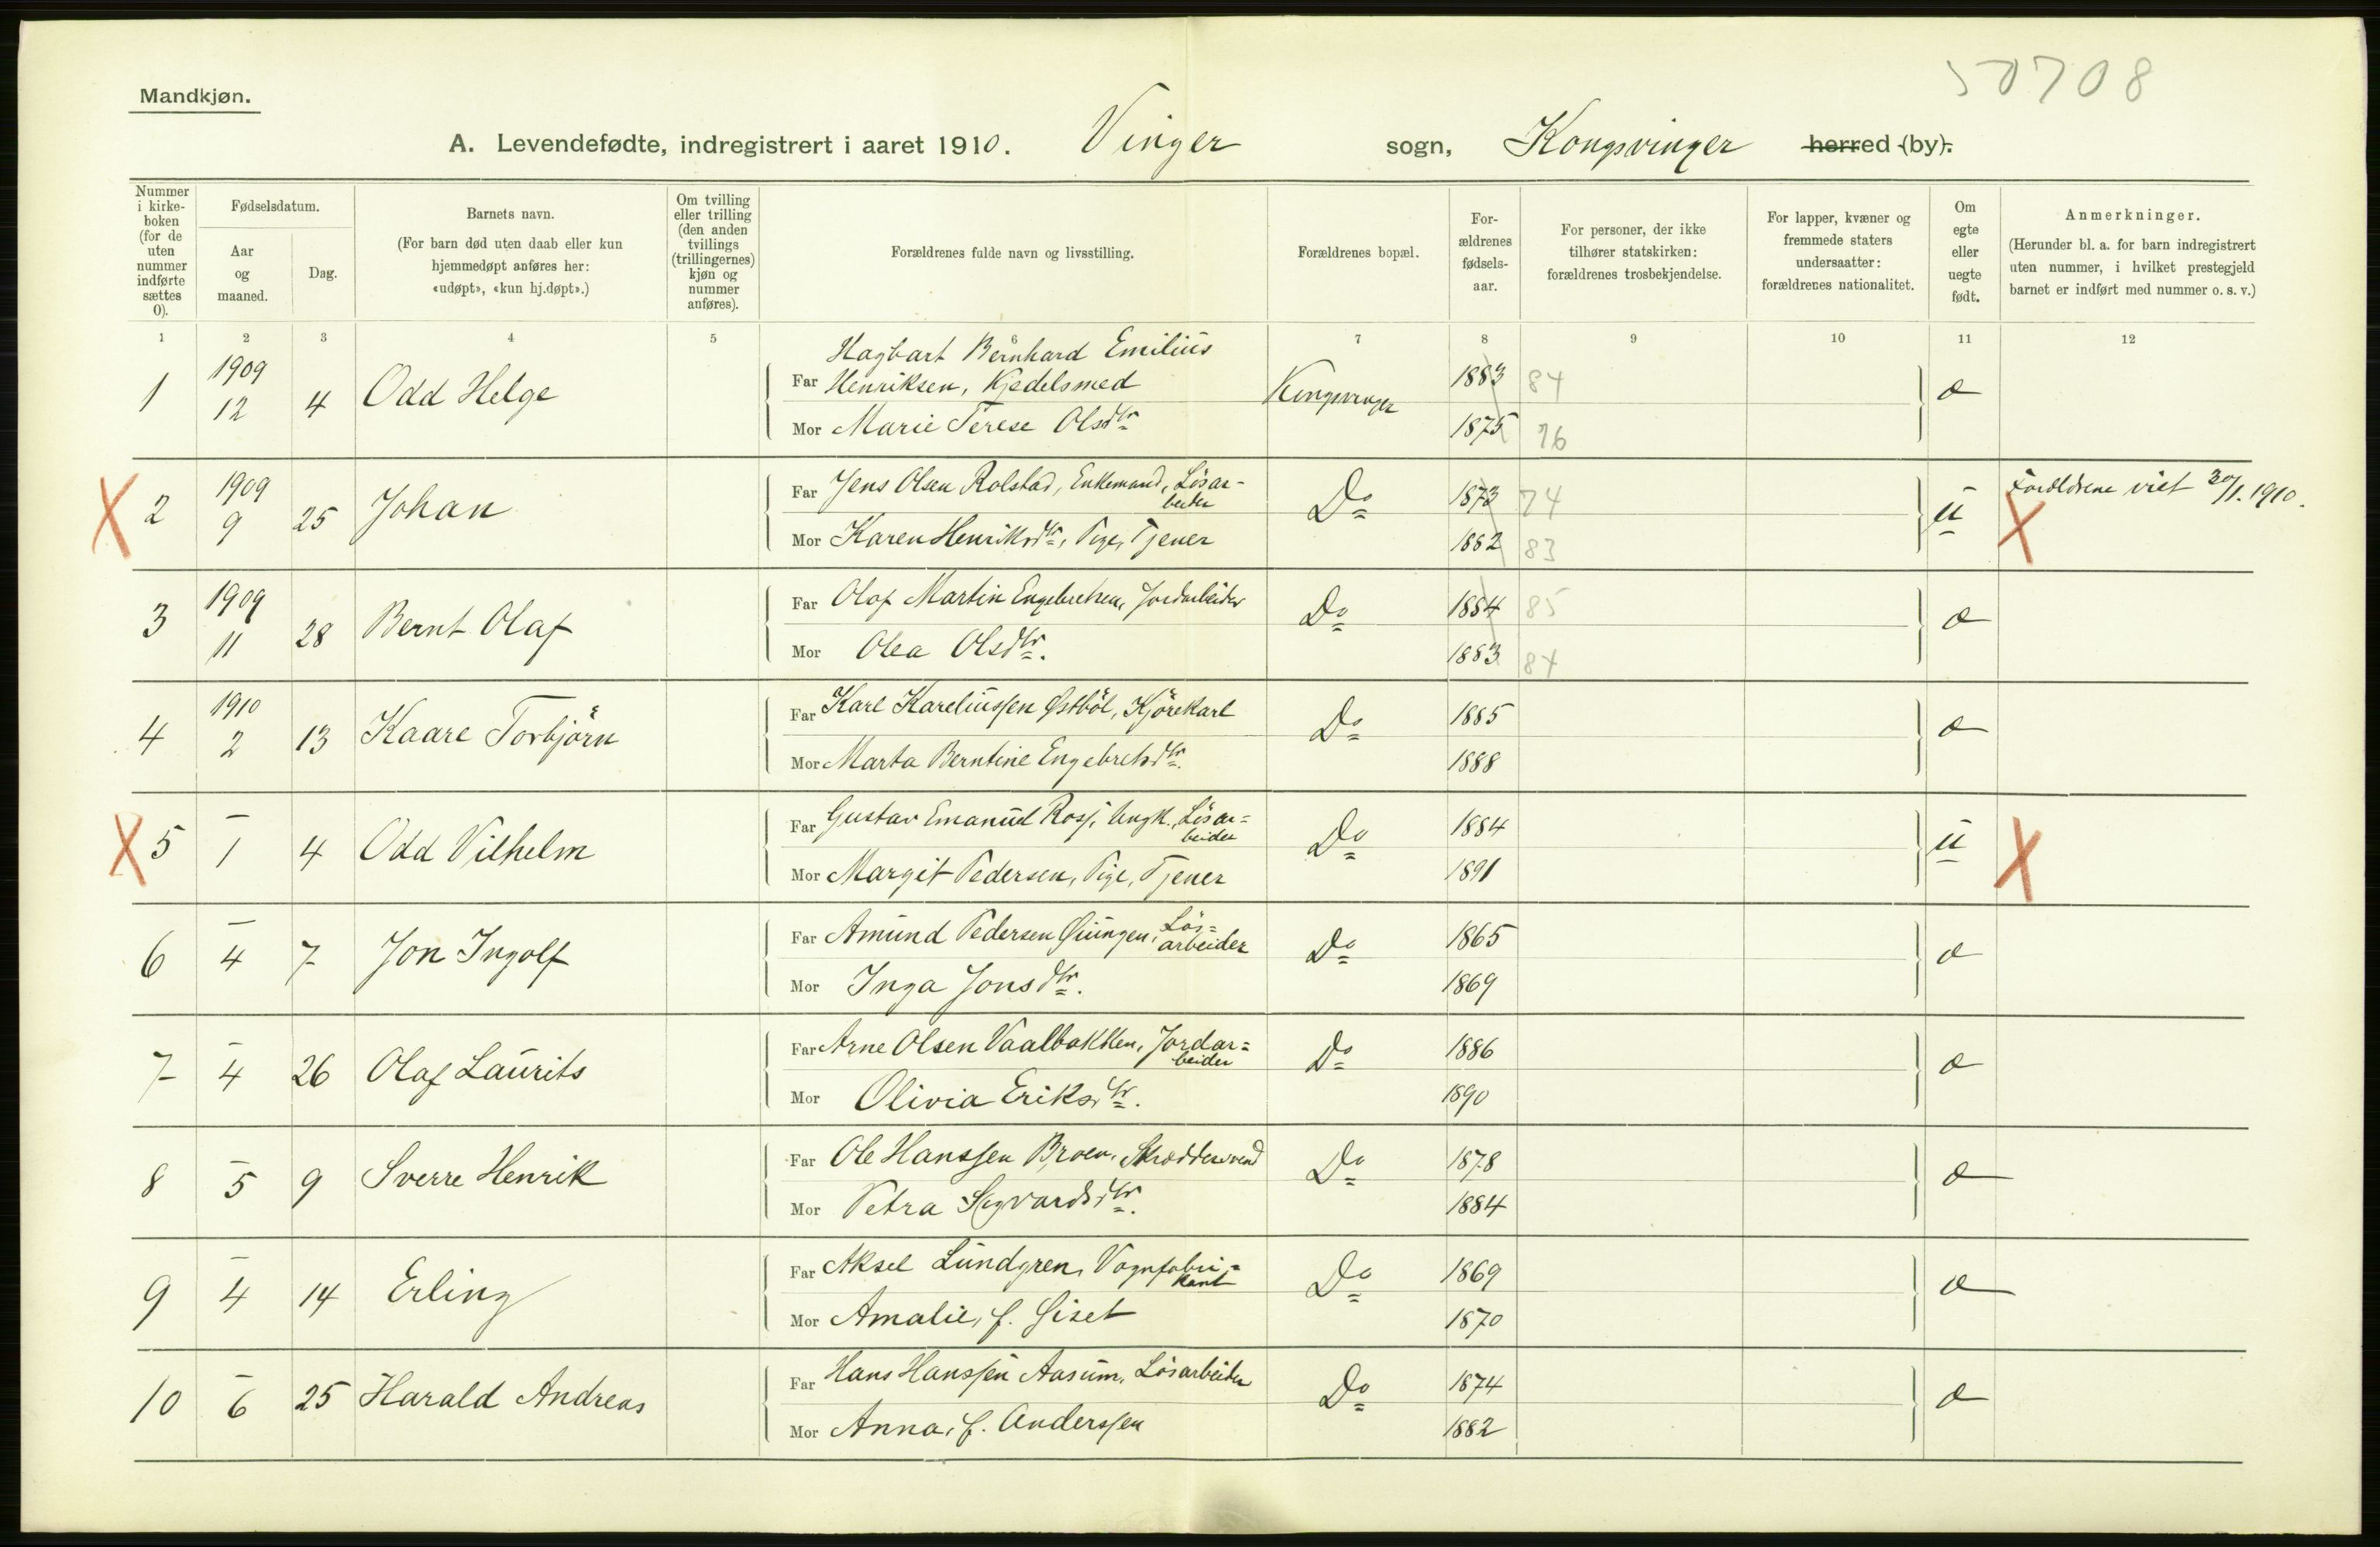 50708
Mandkjøn.
A. Levendefødte, indregistrert i aaret 1910. Vinger sogn, Kongsvinger herred (by).
Nummer i kirke-boken (for de uten nummer indførte sættes 0).
Fødselsdatum.
Aar og maaned.
Dag.
Barnets navn.
(For barn død uten daab eller kun hjemmedøpt anføres her: «udøpt», «kun hj.døpt».)
Om tvilling eller trilling (den anden tvillings (trillingernes) kjøn og nummer anføres).
Forældrenes fulde navn og livsstilling.
Forældrenes bopæl.
For-ældrenes fødsels-aar.
For personer, der ikke tilhører statskirken: forældrenes trosbekjendelse.
For lapper, kvæner og fremmede staters undersaatter: forældrenes nationalitet.
Om egte eller uegte født.
Anmerkninger.
(Herunder bl. a. for barn indregistrert uten nummer, i hvilket prestegjeld barnet er indført med nummer o. s. v.)
1 2 3 4 5 7 8 9 10 11 12
1 1909 12 4 Odd Helge
Hagbart Bernhard Emilius
Far Henriksen, Kjedelsmed Kongsvinger 1883 84 æ
Mor Marie Terese Olsdtr 1875 76
X 2 1909 9 25 Johan
Far Jens Olsen Rolstad, Enkemand, Lösar-
beider Do 1873 74 u Forældrene viet 30/1. 1910. X
Mor Karen Henriksdtr, Pige, Tjener 1882 83
3 1909 11 28 Bernt Olaf
Far Olaf Martin Engebretsen, Jordarbeider Do 1884 85 æ
Mor Olea Olsdtr. 1883 84
4 1910 2 13 Kaare Torbjörn
Far Karl Kareliussen Østböl, Kjörekarl Do 1885 æ
Mor Marta Berntine Engebretsdtr. 1888
X 5 – 1 4 Odd Vilhelm
Far Gustav Emanuel Ross, Ungk., Lösar=
beider Do 1884 u X
Mor Margit Pedersen, Pige, Tjener 1891
6 – 4 7 Jon Ingolf
Far Amund Pedersen Öiungen, Lös=
arbeider Do 1865 æ
Mor Inga Jonsdtr. 1869
7 – 4 26 Olaf Laurits
Far Arne Olsen Vaalbakken, Jordar=
beider Do 1886 æ
Mor Olivia Eriksdtr. 1890
8 – 5 9 Sverre Henrik
Far Ole Hanssen Broen, Skræddersvend Do 1878 æ
Mor Petra Sigvardsdtr. 1884
9 – 4 14 Erling
Far Aksel Lundgren, Vognfabri=
kant Do 1869 æ
Mor Amalie, f. Siset 1870
10 – 6 25 Harald Andreas
Far Hans Hanssen Aasum, Lösarbeider Do 1874 æ
Mor Anna, f. Anderssen 1882